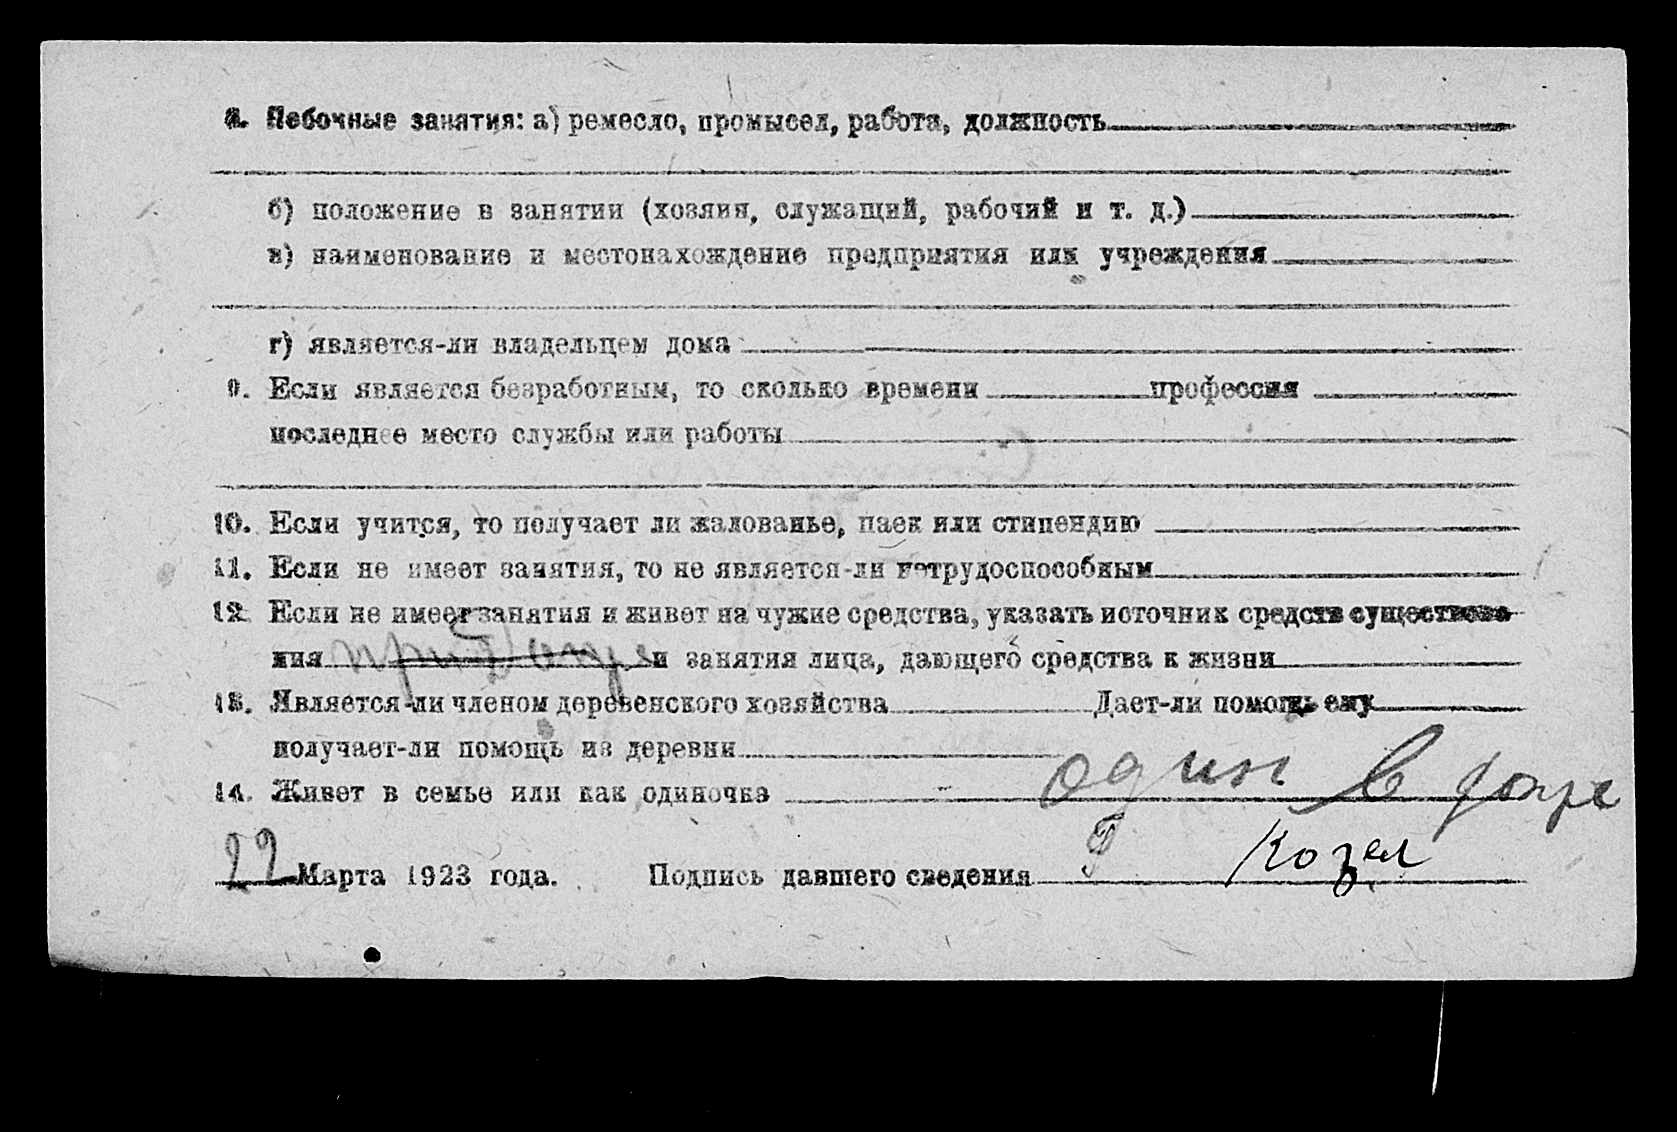 8. Побочные занятия: а) ремесло, промысел, работа, должность
б) положение в занятии (хозяин, служащий, рабочий и т. д.)
в) наименование и местонахождение предприятия или учреждения
г) является-ли владельцем дома
9. Если является безработным, то сколько времени профессия
последнее место службы или работы
10. Если учится, то получает ли жалованье, паек или стипендию
11. Если не имеет занятия, то не является-ли нетрудоспособным
12. Если не имеет занятия и живет на чужие средства, указать источник средств существова
ния и занятия лица, дающего средства к жизни
13. Является-ли членом деревенского хозяйства Дает-ли помощь ему
получает-ли помощь из деревни
14. Живет в семье или как одиночка один в
22 Марта 1923 года. Подпись давшего сведения Козел